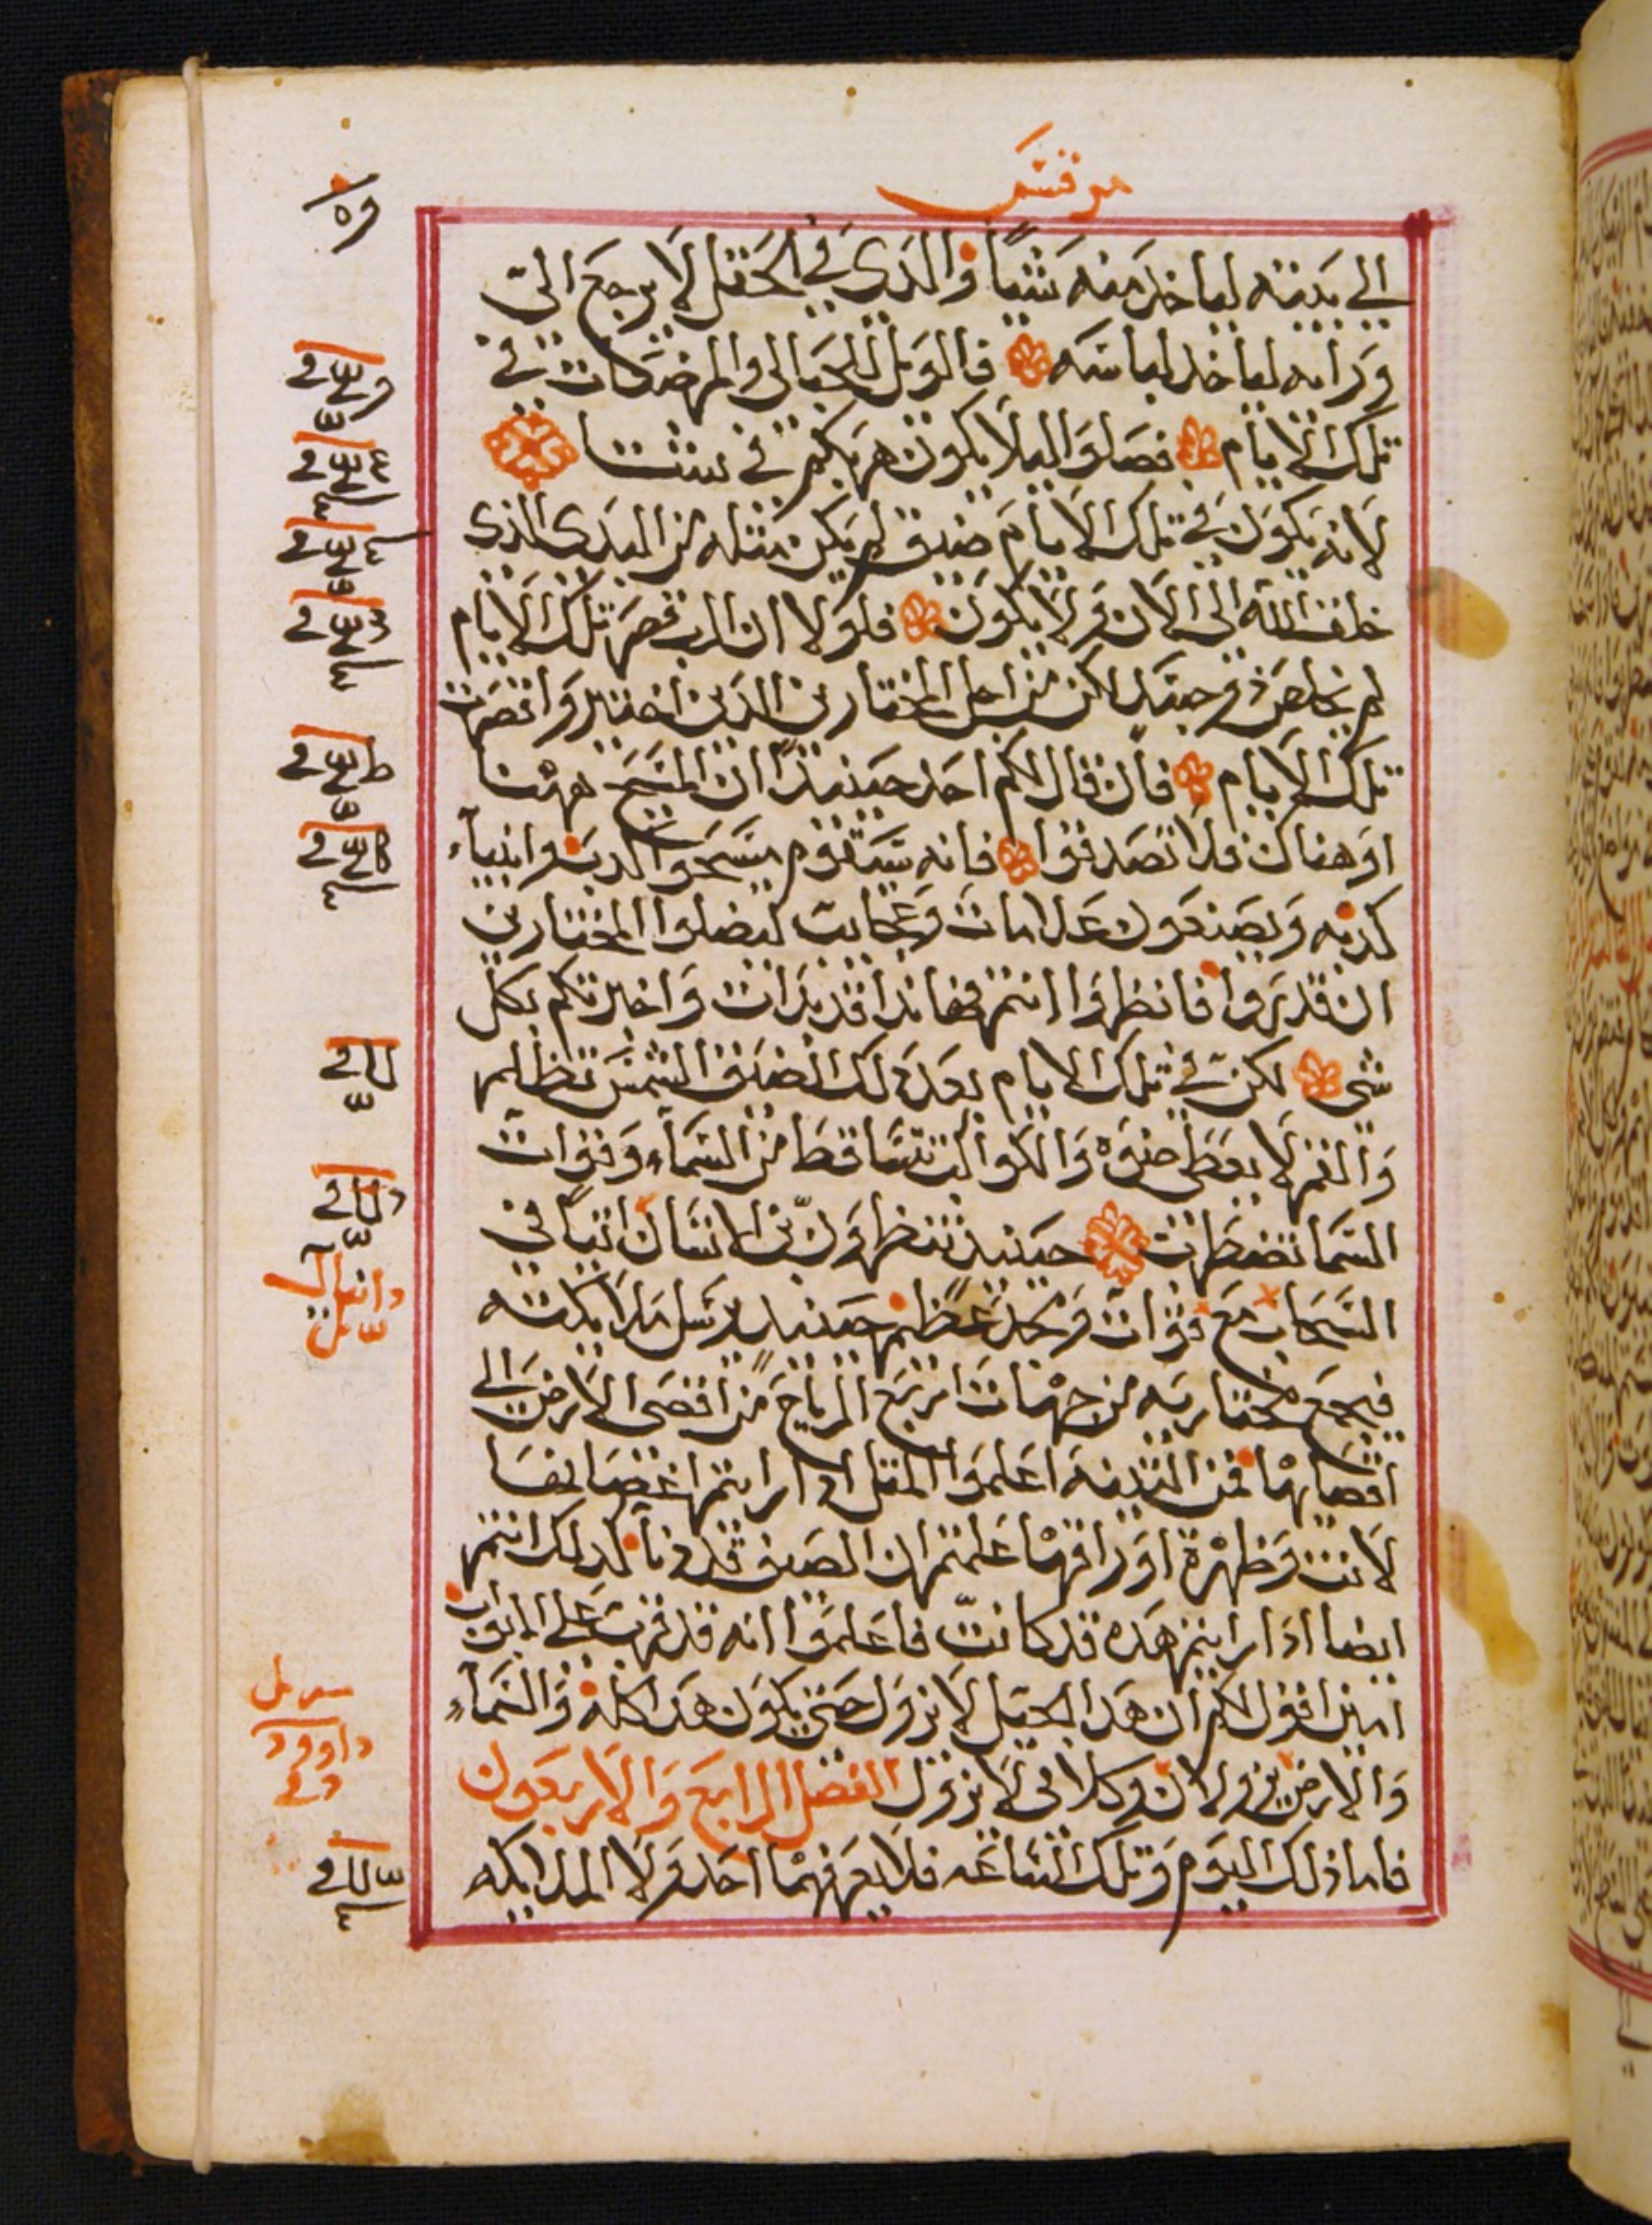 مرقس
الي بيته لياخد منه شيًا والدي في الحقل لا يرجع الي
ورايه لياخد لباسه فالويل للحبالي والمرضعات في
تلك الايام فصلوا ليلا يكون هربكم في ستتا
لانه يكون في تلك الايام ضيق لم يكن مثله من البدي الذي
خلق الله الي الان ولا يكون فلولا ان الرب قصر تلك الايام
لم يخلص ذو جسد لاكن من اجل المختارين الدين اختير واقصرت
تلك الايام فان قال لكم احد حينيدًا ان المسيح ههنا
او هناك فلا تصدقوا فانه سيقوم مسحوا كدب وانبياء
كدبه ويصنعون علامات وعجايب ليضلوا المختارين
ان قدروا فانظروا انتم فهاندا قد بدات واخبرتكم بكل
شي لكن في تلك الايام بعد دلك الضيق الشمس تظلم
والقمر لا يعطي ضوه والكواكب تتساقط من السماء وقوات
السما تضطرب حينيد تنظرون بن الانسان اتيًا في
السحاب مع قوات ومجد عظيم حينيد يرسل ملايكته
فيجمع مختاريه من جهات اربع الرياح من اقصي الارض الي
اقصايها فمن التينه اعلموا المتل ادا رايتم اغصانها
لانت وظهرة اوراقها علمتم ان الصيف قد دنا كدلك انتم
ايضا ادا رايتم هده قد كانت فاعلموا انه قد قرب علي الابواب
امين اقول لكم ان هدا الجيل لا يزول حتي يكون هدا كله والسماء
والارض يزولان وكلامي لا يزول الفصل الرابع والاربعون
فاما ذلك اليوم وتلك الساعه فلا يعرفهما احد ولا الملايكه
دانيال
داوود